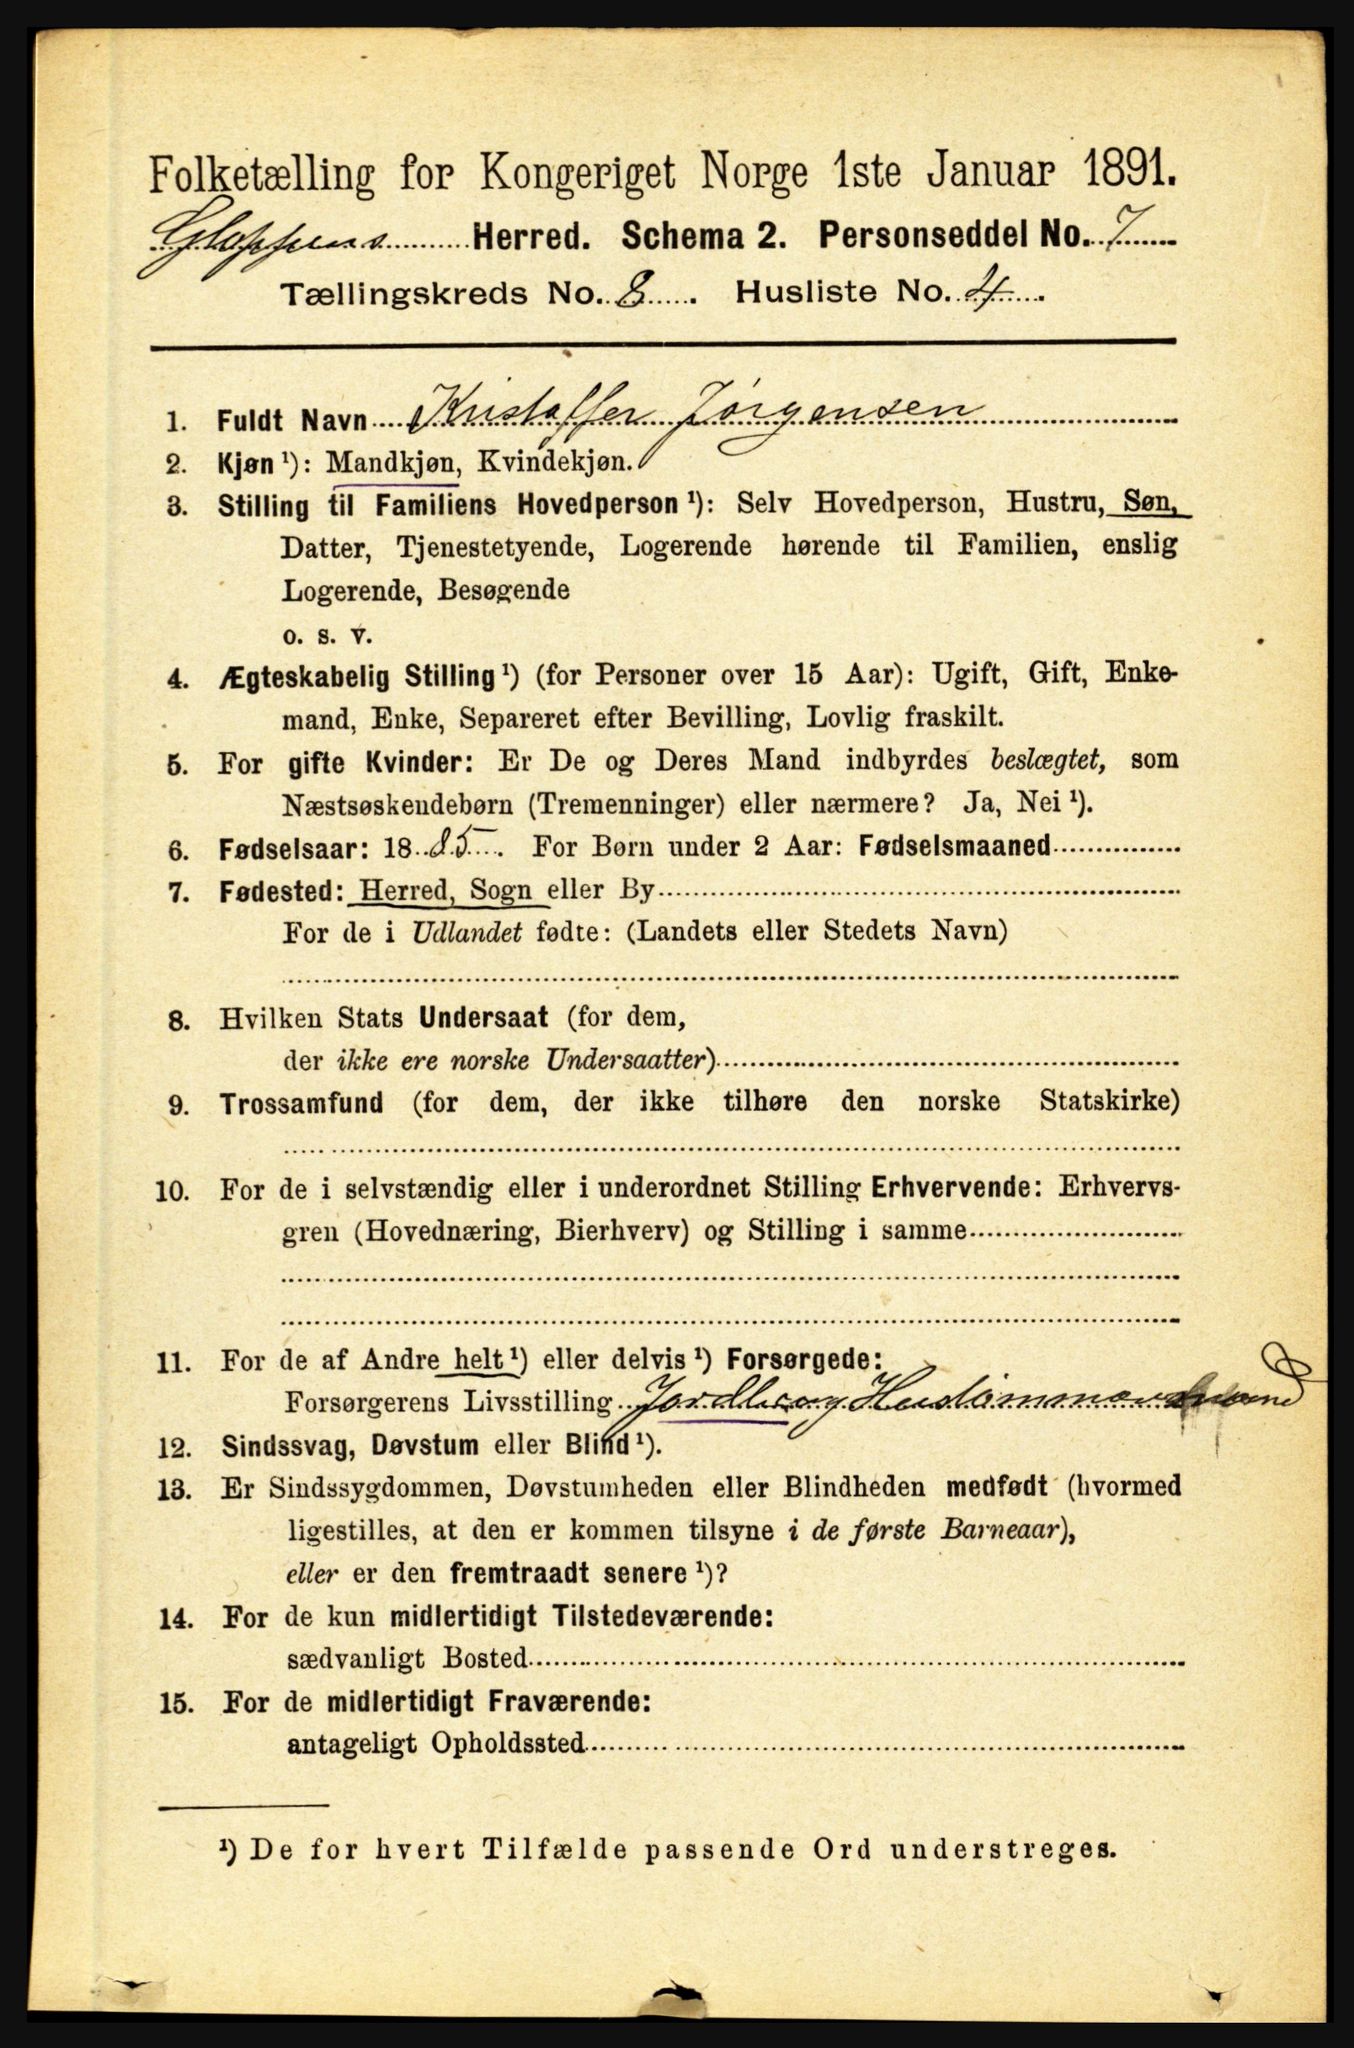 Folketælling for Kongeriget Norge 1ste Januar 1891.
Gloppens Herred. Schema 2. Personseddel No. 7
Tællingskreds No. 8. Husliste No. 4.
1. Fuldt Navn Kristoffer Jørgensen
2. Kjøn ¹): Mandkjøn, Kvindekjøn.
3. Stilling til Familiens Hovedperson ¹): Selv Hovedperson, Hustru, Søn,
Datter, Tjenestetyende, Logerende hørende til Familien, enslig
Logerende, Besøgende
o. s. v.
4. Ægteskabelig Stilling ¹) (for Personer over 15 Aar): Ugift, Gift, Enke-
mand, Enke, Separeret efter Bevilling, Lovlig fraskilt.
5. For gifte Kvinder: Er De og Deres Mand indbyrdes beslægtet, som
Næstsøskendebørn (Tremenninger) eller nærmere? Ja, Nei ¹).
6. Fødselsaar: 1885. For Børn under 2 Aar: Fødselsmaaned
7. Fødested: Herred, Sogn eller By
For de i Udlandet fødte: (Landets eller Stedets Navn)
8. Hvilken Stats Undersaat (for dem,
der ikke ere norske Undersaatter)
9. Trossamfund (for dem, der ikke tilhøre den norske Statskirke)
10. For de i selvstændig eller i underordnet Stilling Erhvervende: Erhvervs-
gren (Hovednæring, Bierhverv) og Stilling i samme
11. For de af Andre helt ¹) eller delvis ¹) Forsørgede:
Forsørgerens Livsstilling Jordbrug
12. Sindssvag, Døvstum eller Blind ¹).
13. Er Sindssygdommen, Døvstumheden eller Blindheden medfødt (hvormed
ligestilles, at den er kommen tilsyne i de første Barneaar),
eller er den fremtraadt senere ¹)?
14. For de kun midlertidigt Tilstedeværende:
sædvanligt Bosted
15. For de midlertidigt Fraværende:
antageligt Opholdssted
¹) De for hvert Tilfælde passende Ord understreges.